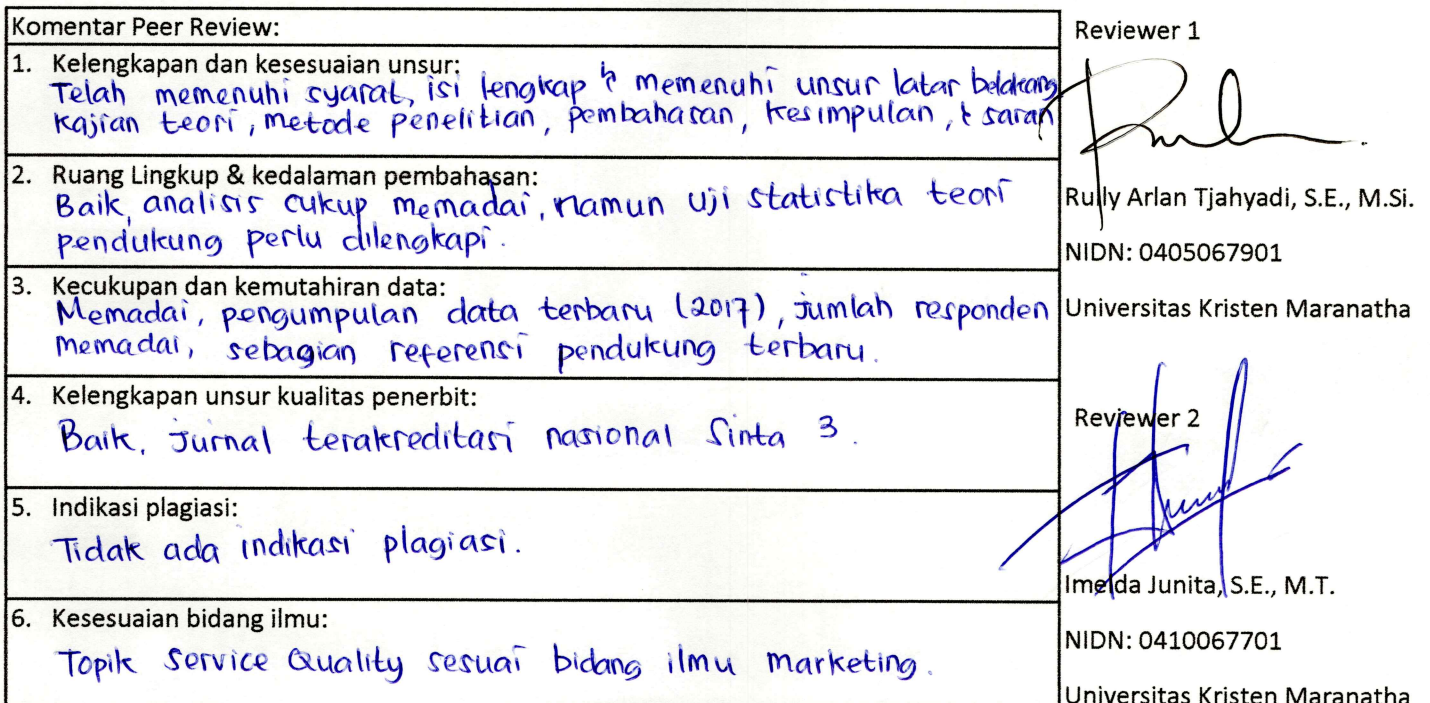 Komentar Peer Review:
1. Kelengkapan dan kesesuaian unsur:
Telah memenuhi syarat, isi lengkap & memenuhi unsur latar belakang
kajian teori, metode penelitian, pembahasan, kesimpulan, & saran
2. Ruang Lingkup & kedalaman pembahasan:
Baik, analisis cukup memadai, namun uji statistika teori
pendukung perlu dilengkapi.
3. Kecukupan dan kemutahiran data:
Memadai, pengumpulan data terbaru (2017), jumlah responden
memadai, sebagian referensi pendukung terbaru.
4. Kelengkapan unsur kualitas penerbit:
Baik, Jurnal terakreditasi nasional Sinta 3.
5. Indikasi plagiasi:
Tidak ada indikasi plagiasi.
6. Kesesuaian bidang ilmu:
Topik Service Quality sesuai bidang ilmu marketing.
Reviewer 1
Rully Arlan Tjahyadi, S.E., M.Si.
NIDN: 0405067901
Universitas Kristen Maranatha
Reviewer 2
Imelda Junita, S.E., M.T.
NIDN: 0410067701
Universitas Kristen Maranatha